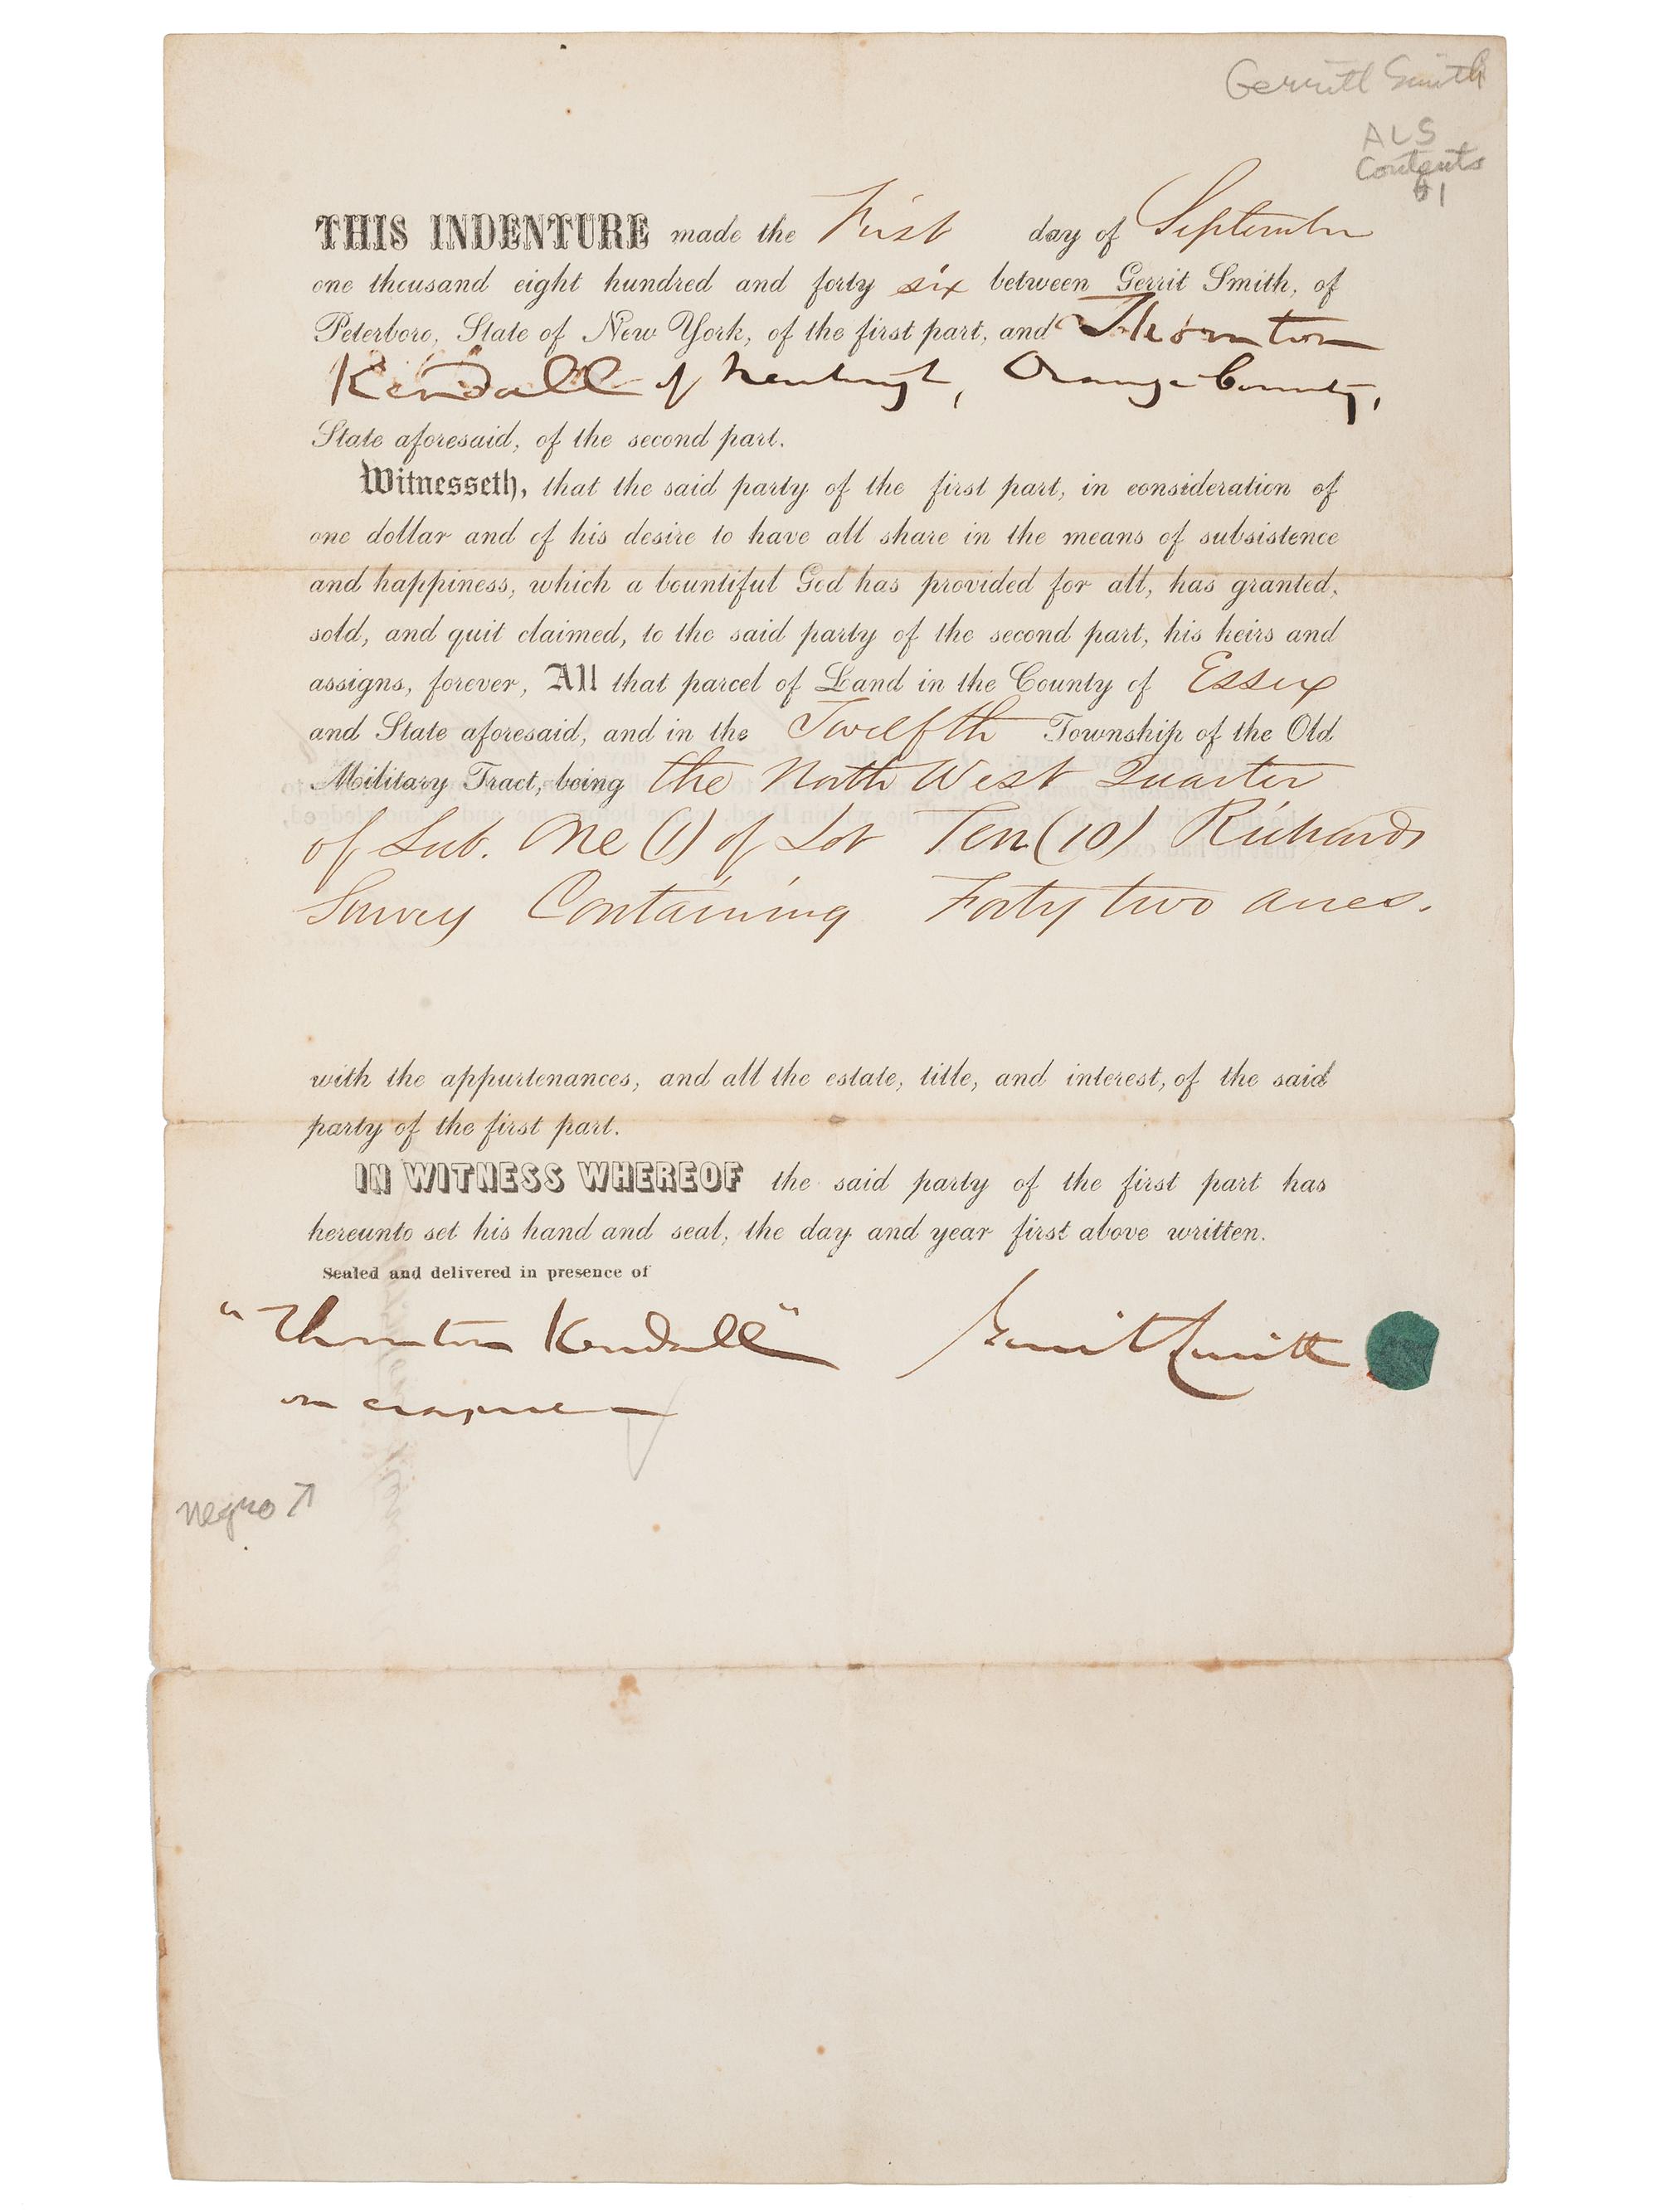 Gerritt Smith
ALS
Contents
THIS INDENTURE made the First day of September
one thousand eight hundred and forty six between Gerrit Smith, of
Peterboro, State of New York, of the first part, and Thornton
Kendall of Newburgh, Orange County,
State aforesaid, of the second part.
Witnesseth, that the said party of the first part, in consideration of
one dollar and of his desire to have all share in the means of subsistence
and happiness, which a bountiful God has provided for all, has granted,
sold, and quit claimed, to the said party of the second part, his heirs and
assigns, forever, All that parcel of Land in the County of Essex
and State aforesaid, and in the Twelfth Township of the Old
Military Tract, being the North West Quarter
of Sub. One (1) of Lot Ten (10) Richards
Survey Containing Forty two acres.
with the appurtenances, and all the estate, title, and interest, of the said
party of the first part.
IN WITNESS WHEREOF the said party of the first part has
hereunto set his hand and seal, the day and year first above written.
Sealed and delivered in presence of
"Thornton Kendall" Gerrit Smith
on erasure
negro ↗